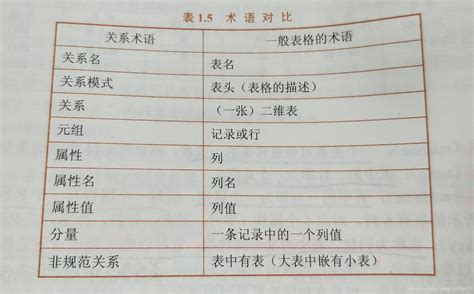 表 1.5 术 语 对 比
关系术语 一般表格的术语
关系名 表名
关系模式 表头（表格的描述）
关系 （一张）二维表
元组 记录或行
属性 列
属性名 列名
属性值 列值
分量 一条记录中的一个列值
非规范关系 表中有表（大表中嵌有小表）